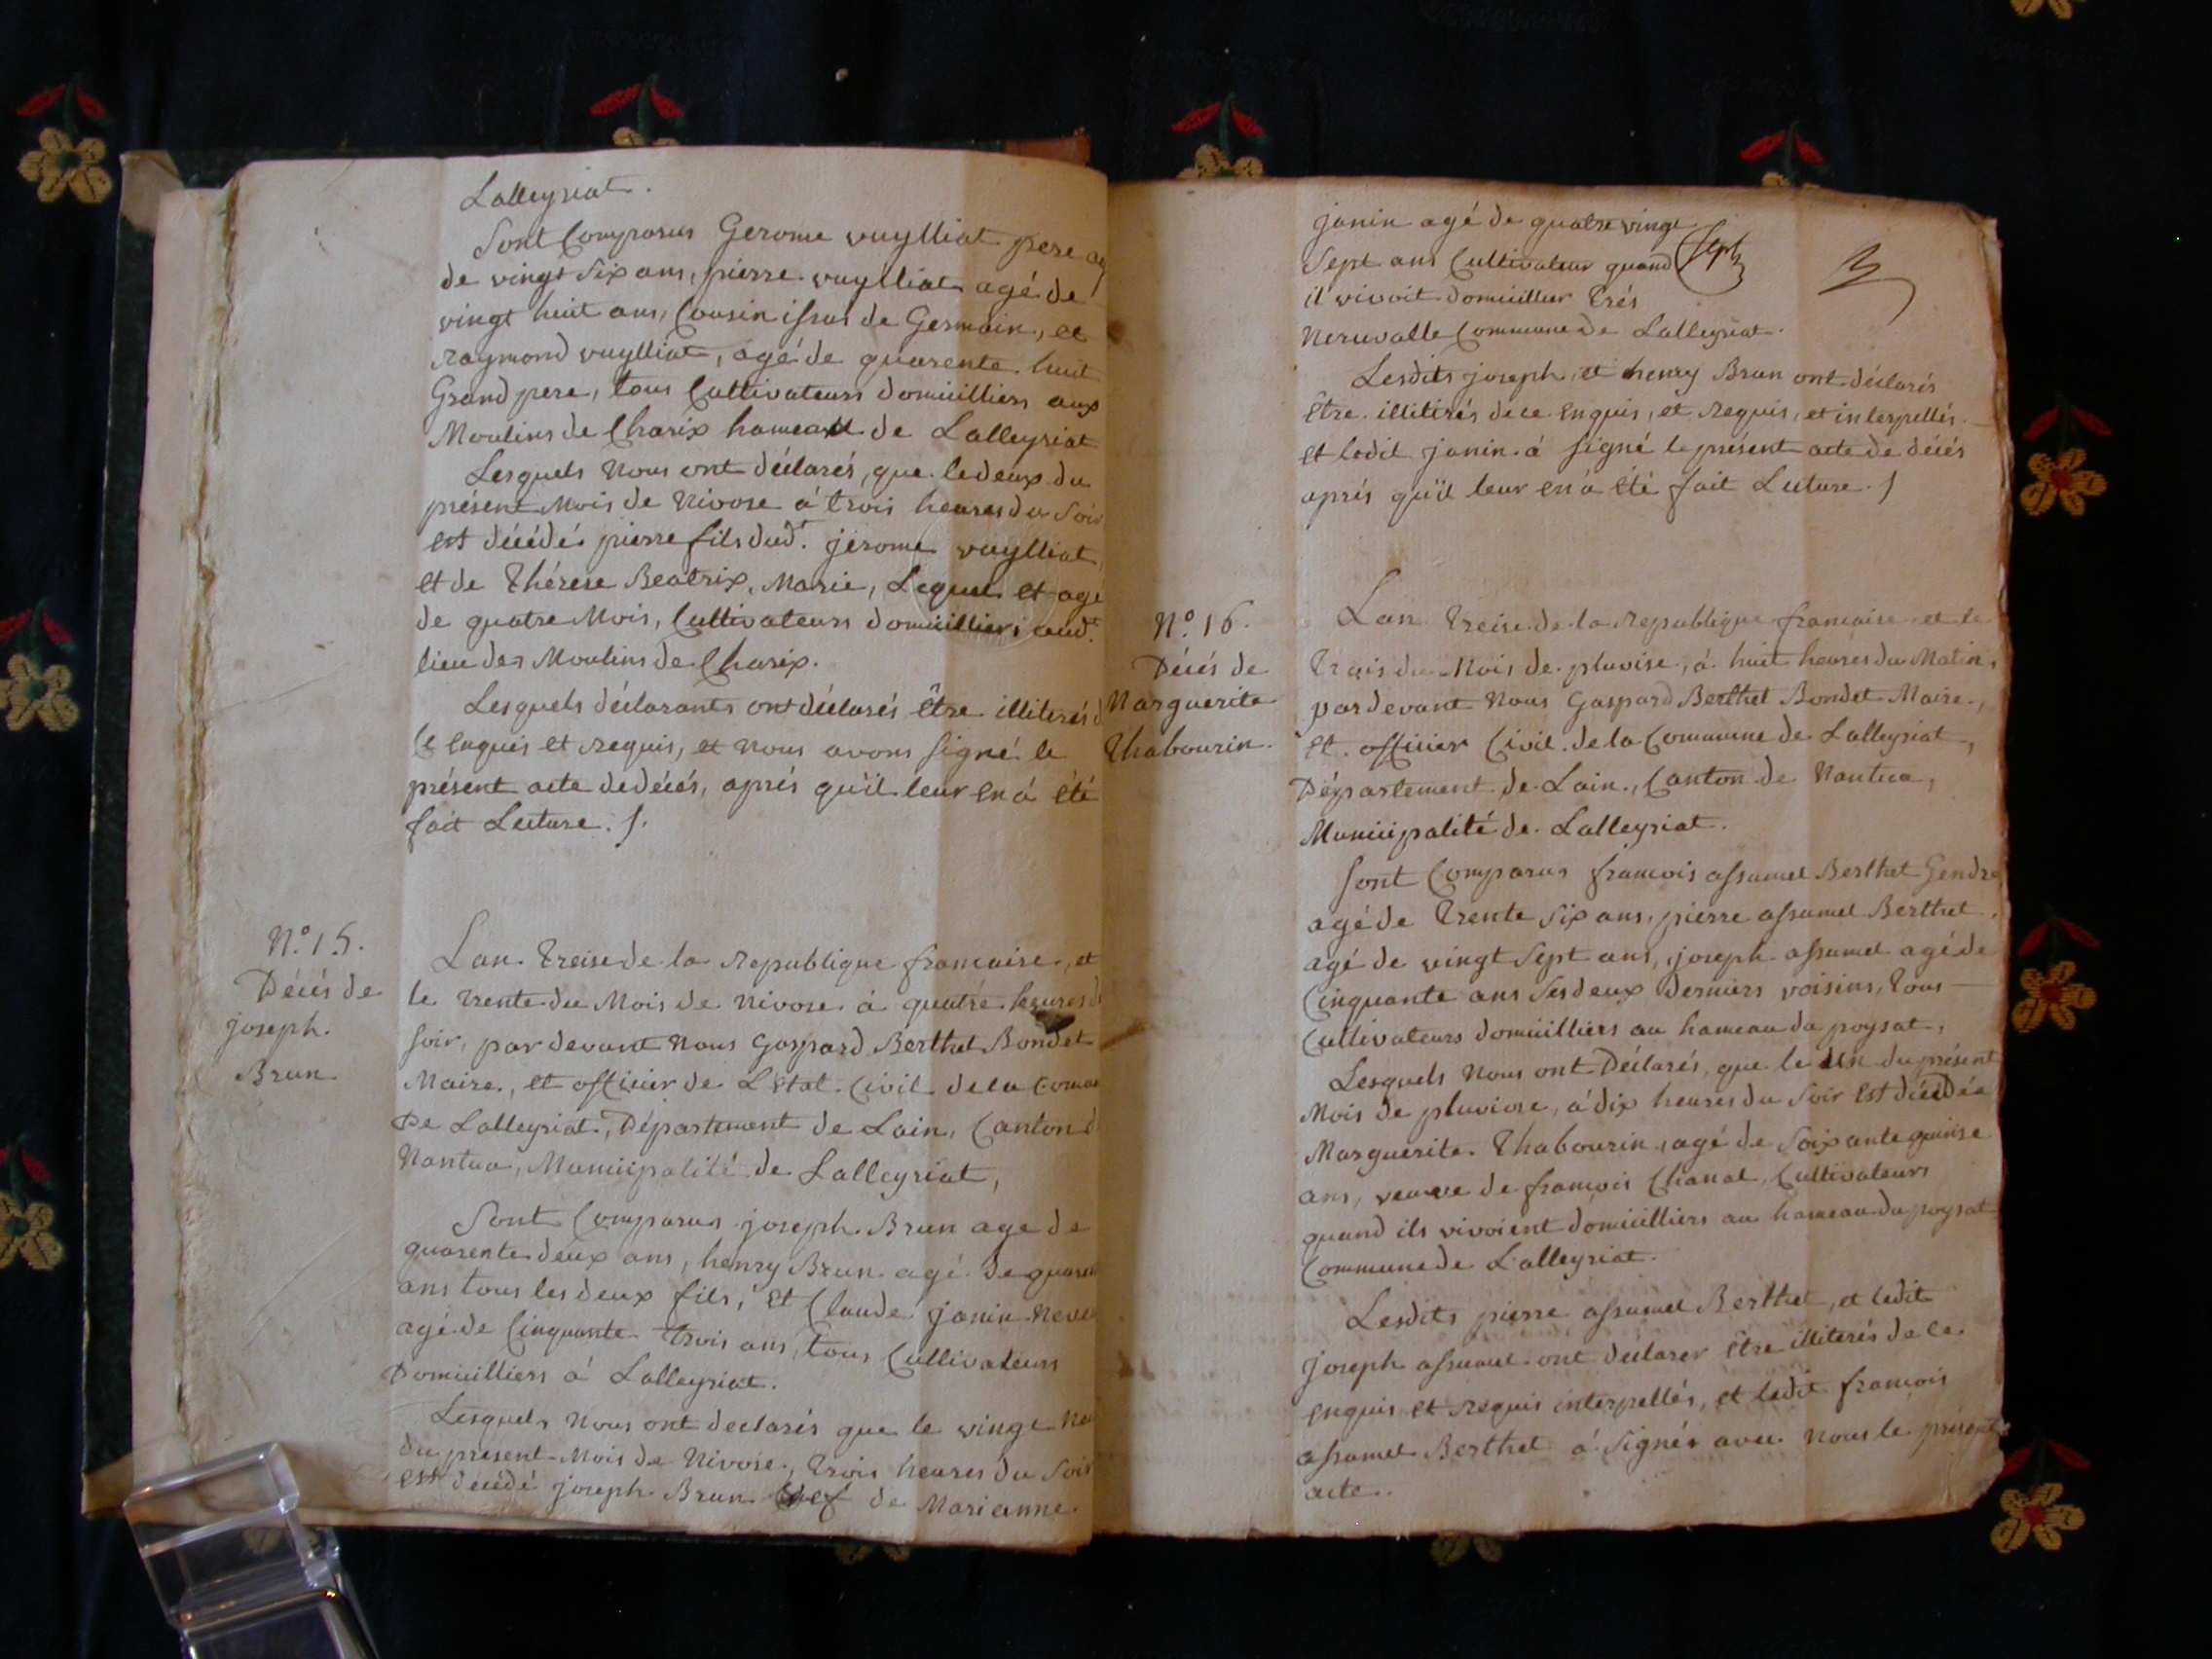 Lalleyriat.
Sont Comparus Gerome vuylliat pere ag
de vingt Six ans, pierre vuylliat agé de
vingt huit ans, Cousin issus de Germain, et
raymond vuylliat, agé de quarente huit
Grand pere, tous Cultivateurs domicilliers aux
Moulins de Charix hameau de Lalleyriat
Lesquels Nous ont déclarés, que le deux du
présent Mois de Nivose á trois heures du Soir
est décédé pierre fils dud.t jérome vuylliat
et de Thérese Beatrix, Marie, Lequel et agé
de quatre Mois, Cultivateurs domicilliers aud.t
lieu des Moulins de Charix.
Lesquels déclarants ont déclarés être illiterés d
Ce enquis et requis, et Nous avons signé le
présent acte de décés, aprés qu'il leur en á été
fait Lecture. /.
N.o 15.
Décés de
joseph.
Brun.
Lan treise de la republique francaise, et
le trente du Mois de Nivose á quatre heures d
soir, par devant Nous Gaspard Berthet Bondet
Maire, et officier de L'etat Civil de la Comu
De Lalleyriat, Département de Lain, Canton d
Nantua, Municipalité de Lalleyriat,
Sont Comparus joseph Brun age de
quarente deux ans, henry Brun agé de quaren
ans tous les deux fils, et Claude janin Neve
agé de Cinquante trois ans, tous Cultivateurs
Domicilliers á Lalleyriat.
Lesquels Nous ont declarés que le vingt Neu
du present Mois de Nivose, trois heures du Soir
est décédé joseph Brun de Marianne
janin agé de quatre vingt
Sept ans Cultivateur quand Sept
il vivoit domicillier
Commune de Lalleyriat.
Lesdits joseph, et henry Brun ont déclarés
être illitirés de ce enquis, et requis, et interpellés
et ledit janin á signé le présent acte de décés
aprés qu'il leur en á été fait Lecture. /
N.o 16.
Décés de
Marguerite
Thabourin.
Lan treise de la republique francaise et le
trois du Mois de pluvise, á huit heures du Matin,
par devant Nous Gaspard Berthet Bondet Maire,
et officier Civil de la Commune de Lalleyriat,
Département de Lain, Canton de Nantua,
Municipalité de Lalleyriat.
Sont Comparus francois assumel Berthet Gendre
agé de trente Six ans, pierre assumel Berthet
agé de vingt Sept ans, joseph assumel agé de
Cinquante ans Ses deux derniers voisins, tous
Cultivateurs domicilliers au hameau du poysat,
Lesquels Nous ont Déclarés, que le un du présent
Mois de pluviose, á dix heures du Soir est décédée
Marguerite Thabourin, agé de Soixante quinse
ans, veuve de francois Chanal, Cultivateurs
quand ils vivoient domicilliers au hameau du poysat
Commune de Lalleyriat.
Lesdits pierre assumel Berthet, et ledit
joseph assumel ont déclarer être illiterés de ce
enquis et requis interpellés, et ledit francois
assumel Berthet á Signés avec Nous le présent
acte.